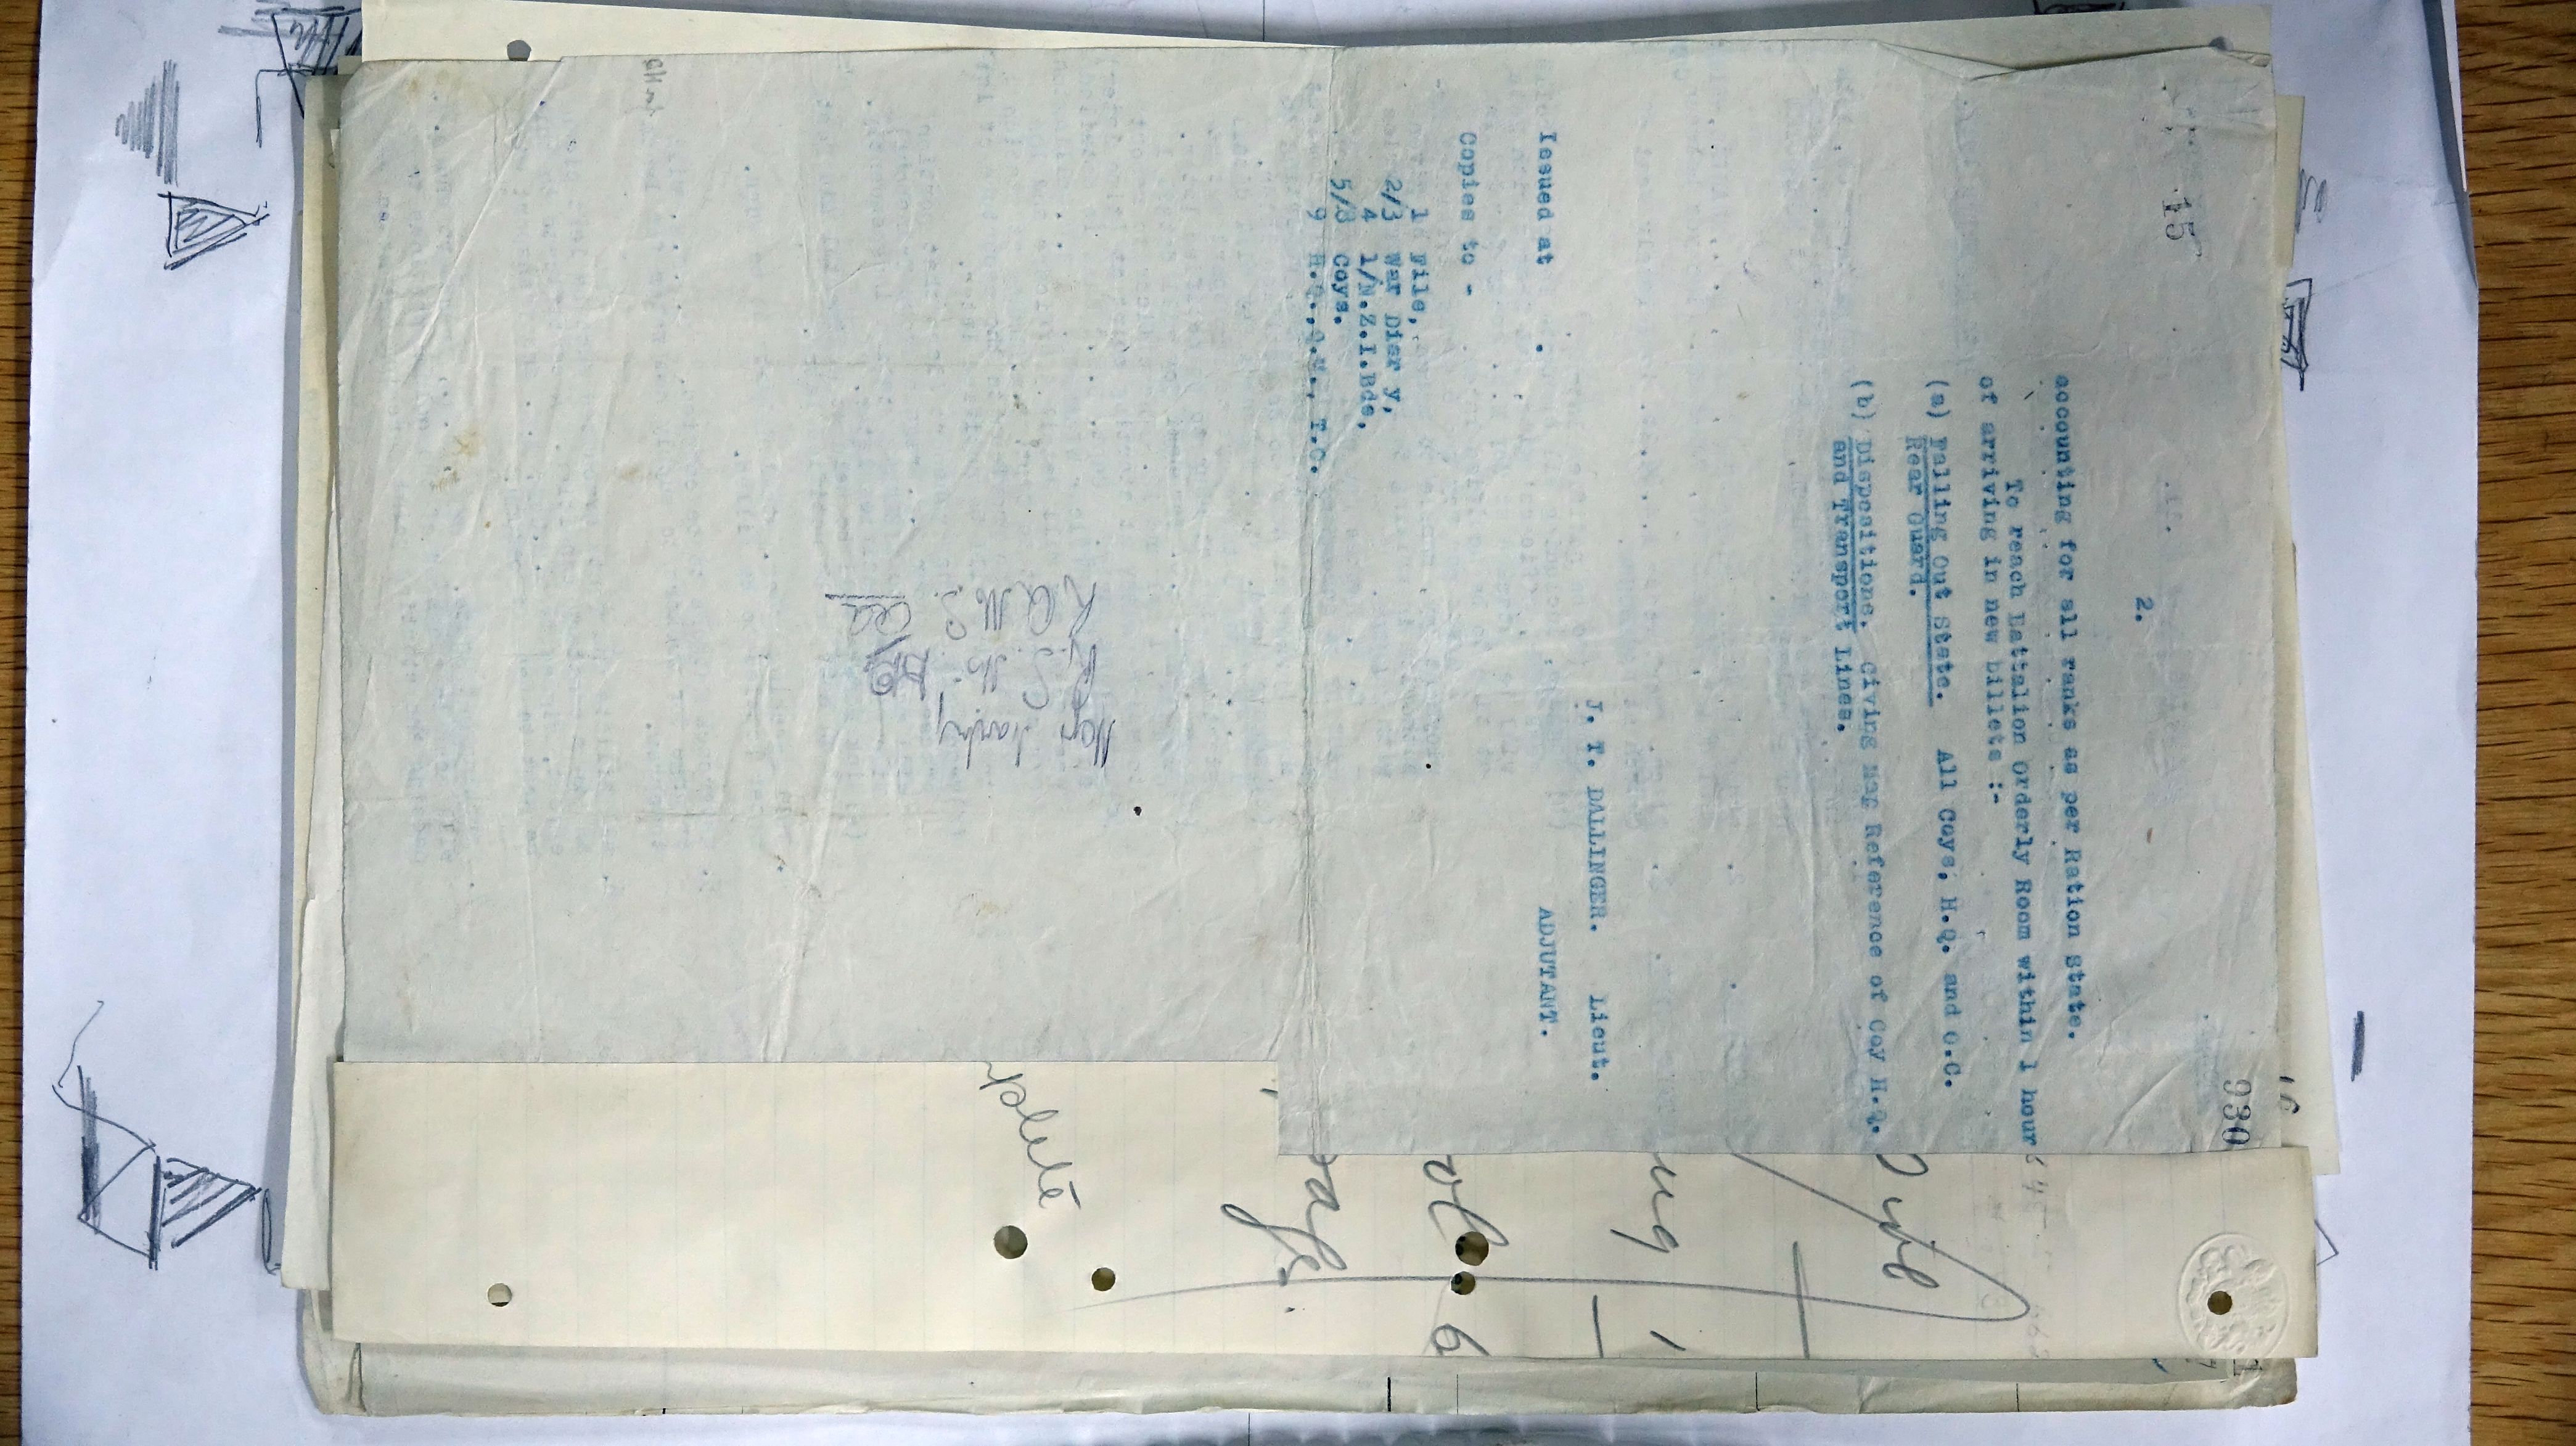 15
930
2.
accounting for all ranks as per Ration State.
To reach Battalion Orderly Room within 1 hour
of arriving in new billets :-
(a) Falling Out State. All Coys, H.Q. and O.C.
Rear Guard.
(b) Dispositions. Giving Map Reference of Coy H.Q.
and Transport Lines.
J. T. DALLINGER. Lieut.
ADJUTANT.
Issued at .
Copies to -
1 File,
2/3 War Diar y,
4 1/N.Z.I.Bde,
5/8 Coys.
9 H.Q., Q.M., T.O.
R.S.M.
R.Q.M.S.
16
ug 1
6